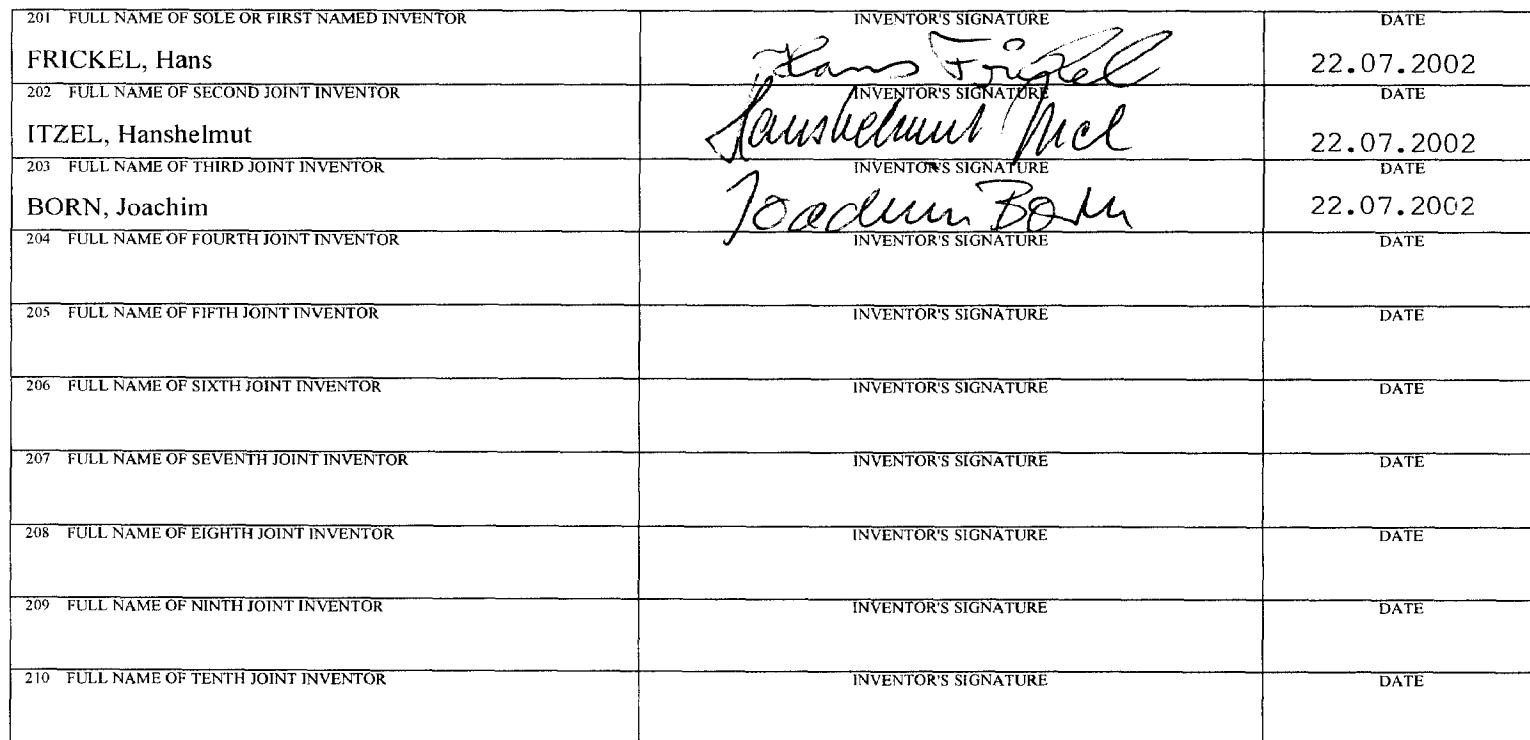 201 FULL NAME OF SOLE OR FIRST NAMED INVENTOR INVENTOR'S SIGNATURE DATE
FRICKEL, Hans Hans Frickel 22.07.2002
202 FULL NAME OF SECOND JOINT INVENTOR INVENTOR'S SIGNATURE DATE
ITZEL, Hanshelmut Hanshelmut Itzel 22.07.2002
203 FULL NAME OF THIRD JOINT INVENTOR INVENTOR'S SIGNATURE DATE
BORN, Joachim Joachim Born 22.07.2002
204 FULL NAME OF FOURTH JOINT INVENTOR INVENTOR'S SIGNATURE DATE
205 FULL NAME OF FIFTH JOINT INVENTOR INVENTOR'S SIGNATURE DATE
206 FULL NAME OF SIXTH JOINT INVENTOR INVENTOR'S SIGNATURE DATE
207 FULL NAME OF SEVENTH JOINT INVENTOR INVENTOR'S SIGNATURE DATE
208 FULL NAME OF EIGHTH JOINT INVENTOR INVENTOR'S SIGNATURE DATE
209 FULL NAME OF NINTH JOINT INVENTOR INVENTOR'S SIGNATURE DATE
210 FULL NAME OF TENTH JOINT INVENTOR INVENTOR'S SIGNATURE DATE